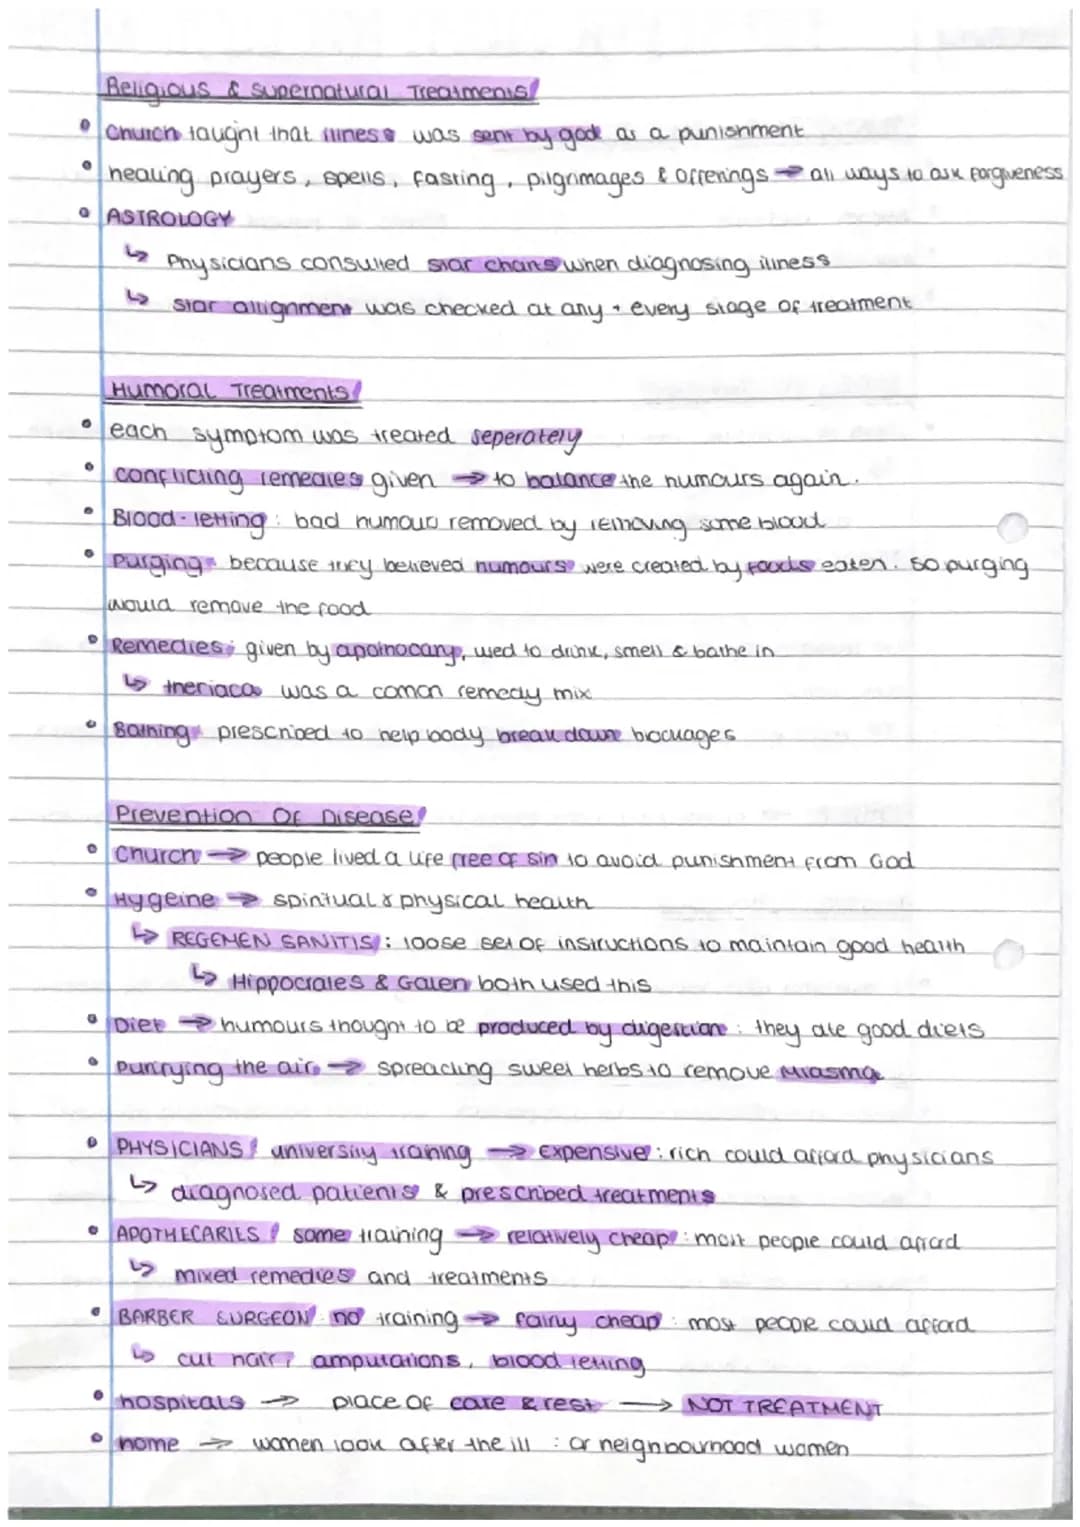 Religious & supernatural Treatments
• Church taught that illness was sent by god as a punishment
• healing prayers, spells, fasting, pilgrimages & offerings → all ways to ask forgiveness
• ASTROLOGY
↳ Physicians consulted star charts when diagnosing illness
↳ star allignment was checked at any + every stage of treatment
Humoral Treatments
• each symptom was treated seperately
• conflicting remedies given → to balance the humours again.
• Blood-letting: bad humour removed by removing some blood
• Purging: because they believed humours were created by foods eaten: so purging
would remove the food
• Remedies: given by apothocary, used to drink, smell & bathe in
↳ theriaca was a comon remedy mix
• Bathing: prescribed to help body break down blockages
Prevention Of Disease
• Church → people lived a life free of sin to avoid punishment from God
• Hygeine → spiritual & physical health
↳ REGEMEN SANITIS: loose set of instructions to maintain good health
↳ Hippocrates & Galen both used this
• Diet → humours thought to be produced by digestion: they ate good diets
• Purifying the air → spreading sweet herbs to remove Miasma
• PHYSICIANS university training → Expensive: rich could afford physicians
↳ diagnosed patients & prescribed treatments
• APOTHECARIES some training → relatively cheap: most people could afford
↳ mixed remedies and treatments
• BARBER SURGEON no training → fairly cheap: most people could afford
↳ cut hair, amputations, blood letting
• hospitals → place of care & rest → NOT TREATMENT
• home → women look after the ill : or neighbourhood women